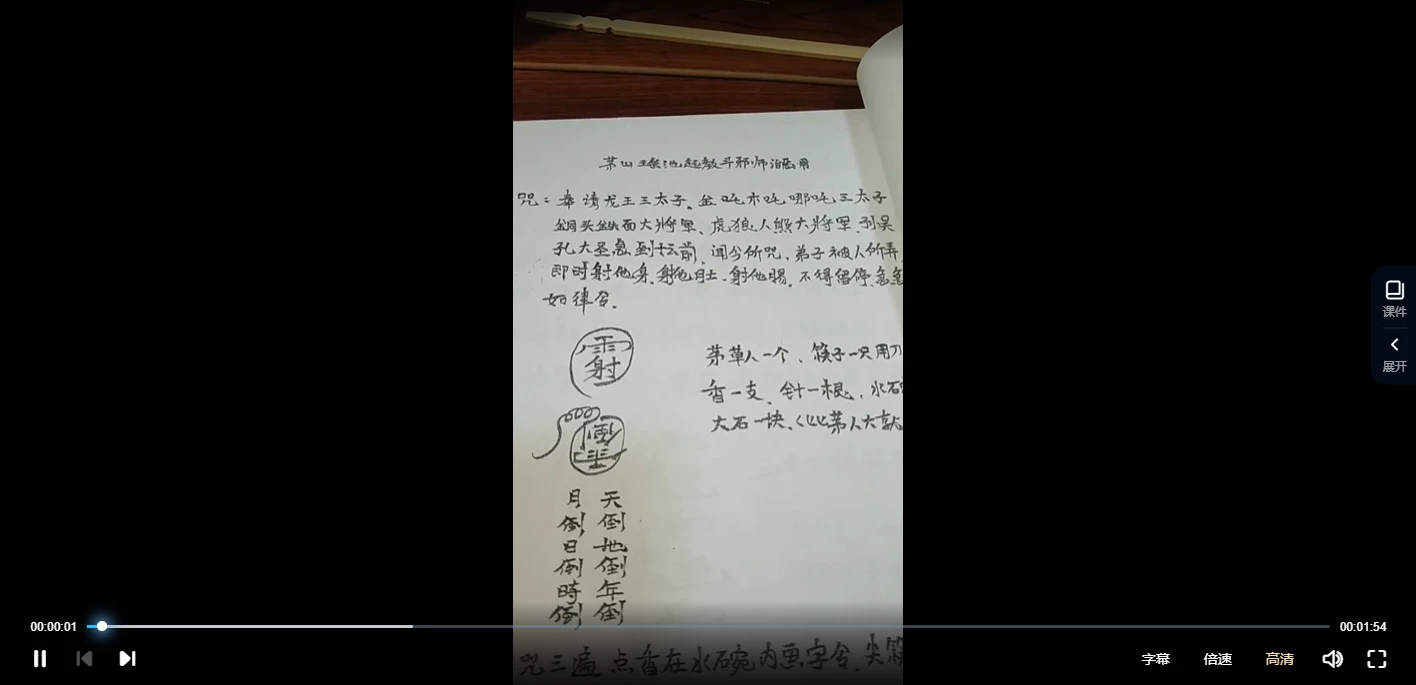 茅山瑶池起教斗邪师治恶用
咒：奉请龙王三太子。金吒木吒哪吒三太子
铜头铁面大將军、虎狼人熊大將军
孔大圣急到坛前，闻今所咒，弟子被人所弄，
即时射他身。射他肚、射他腸。不得留停。急急
如律令。
雷
射
茅草人一个、筷子一只用刀
香一支、针一根、水碗
大石一块、（比茅人大
天倒地倒年倒
月倒日倒時倒
咒三遍 点香在水碗内画字令。尖筷
00:00:01
00:01:54
字幕
倍速
高清
课件
展开